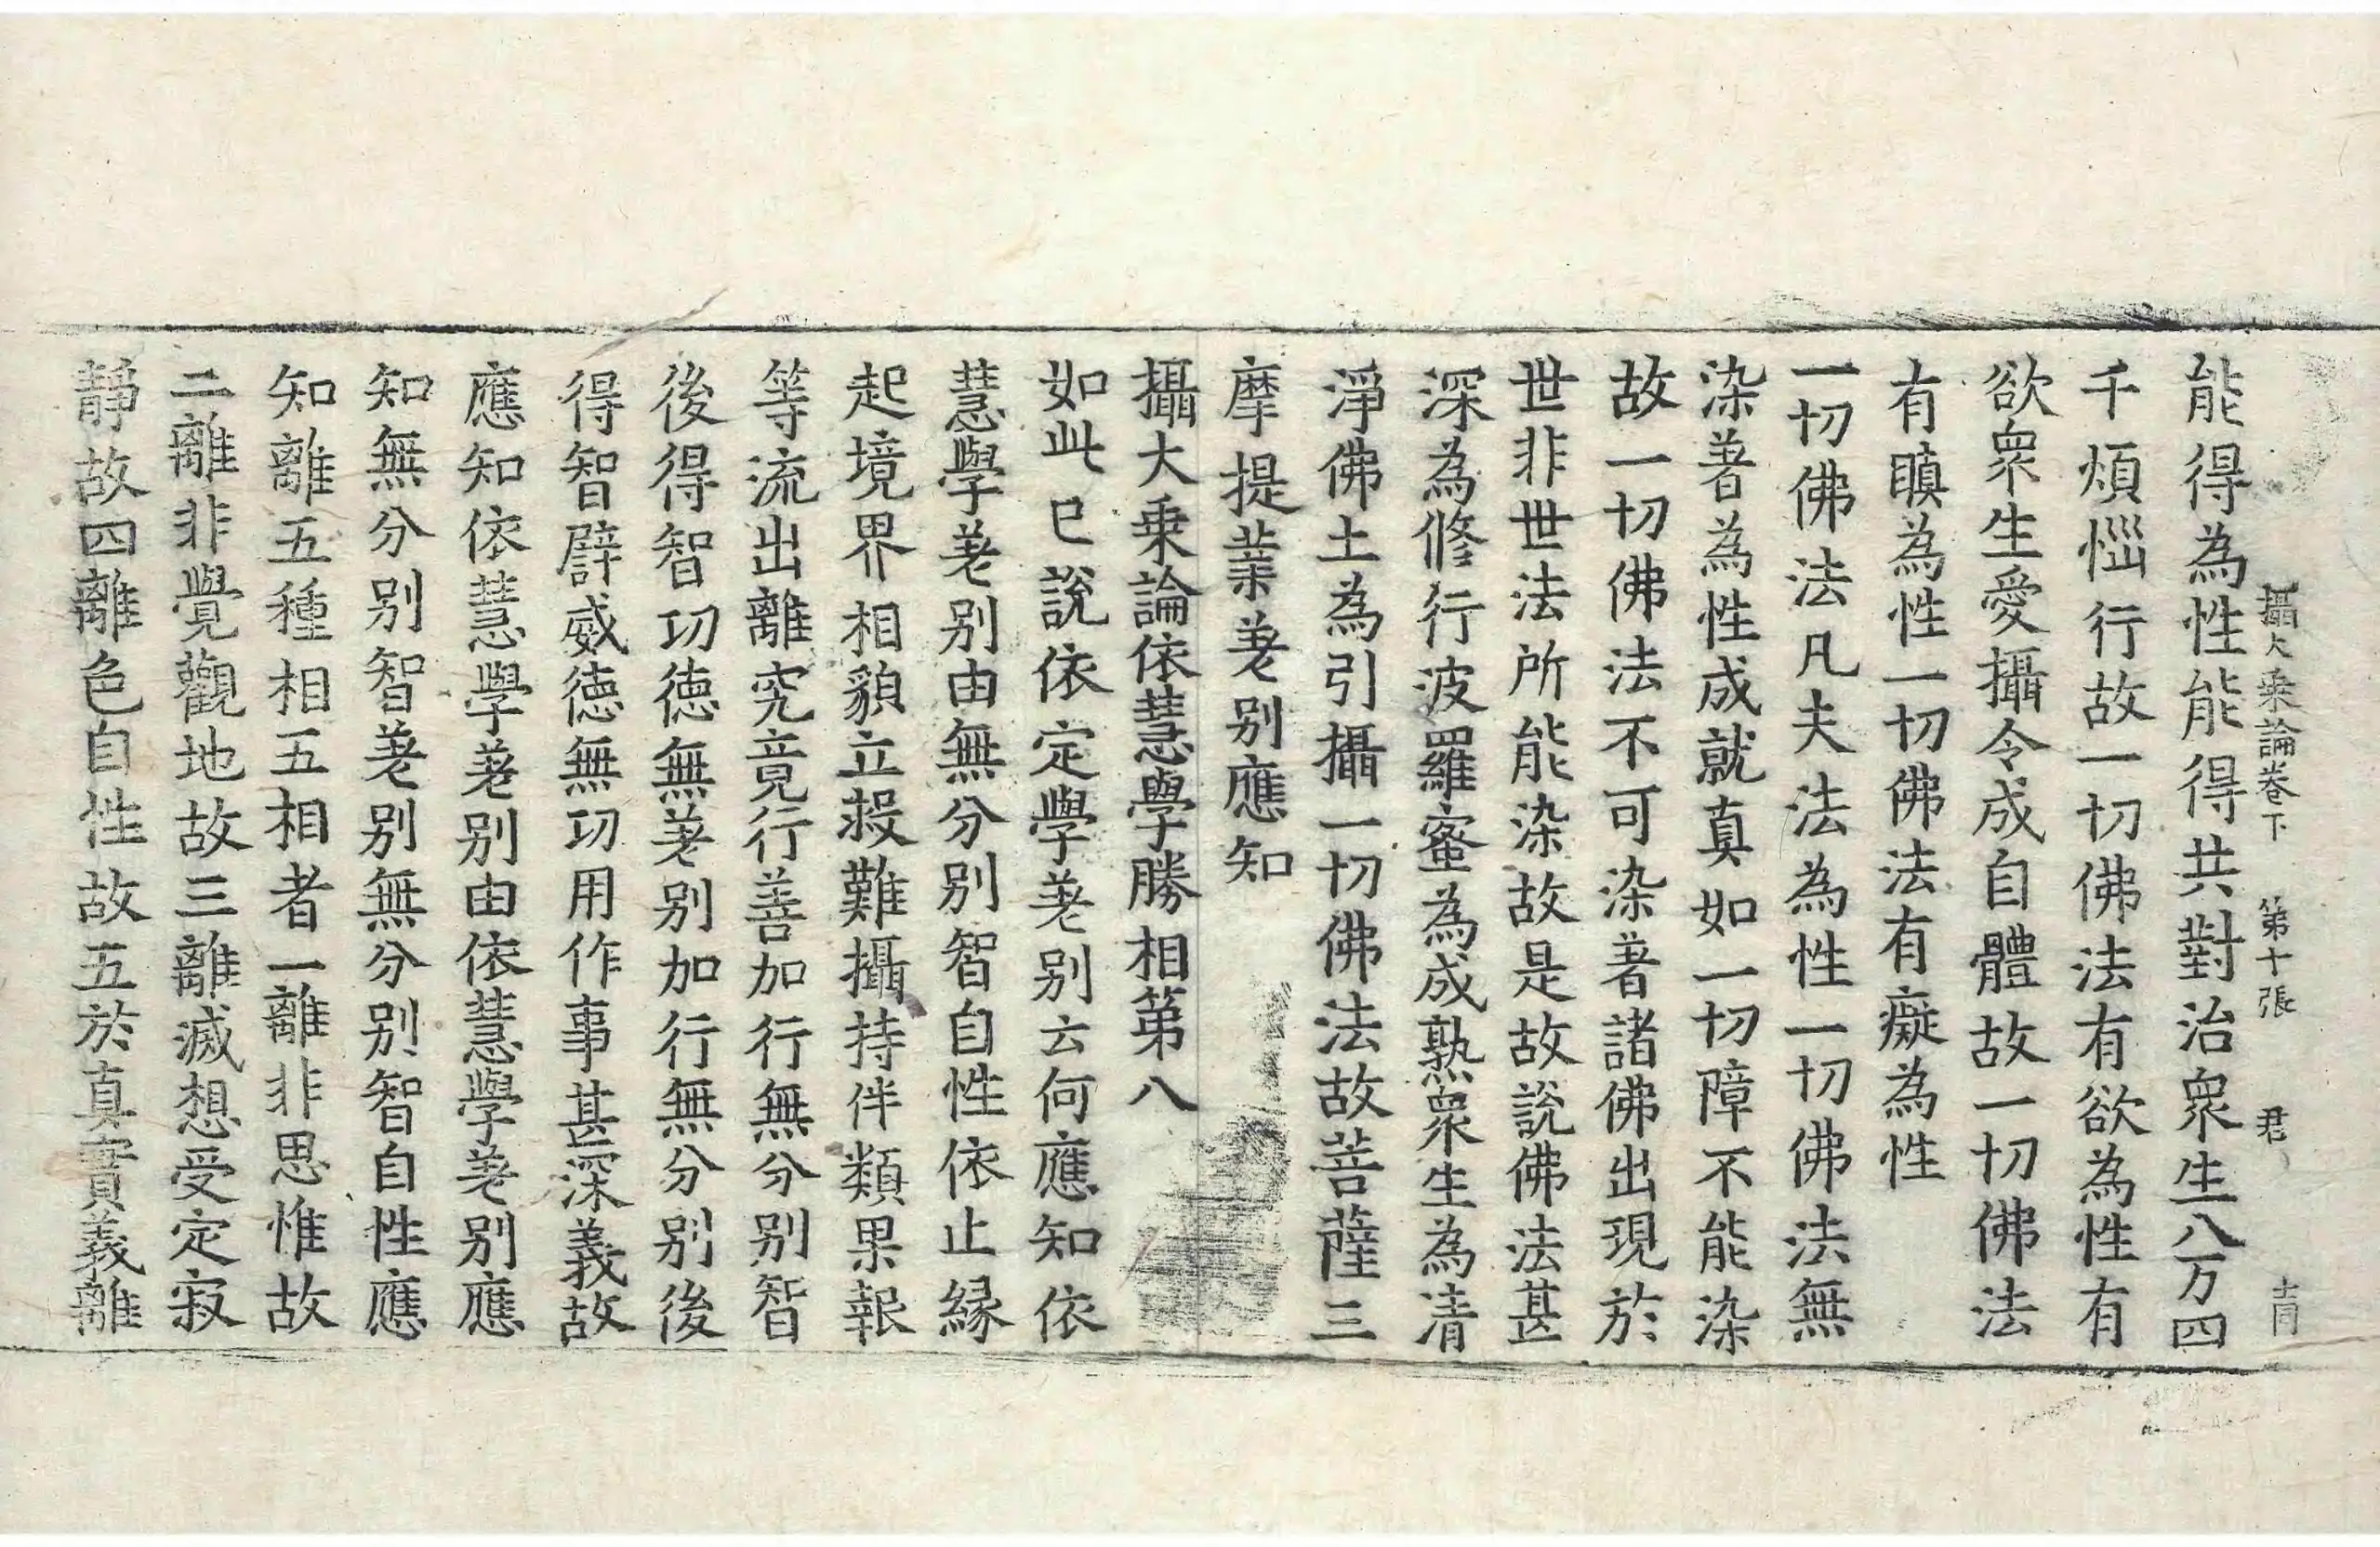 攝大乘論卷下 第十張 君
能得為性能得共對治衆生八万四
千煩惱行故一切佛法有欲為性有
欲衆生愛攝令成自體故一切佛法
有瞋為性一切佛法有癡為性
一切佛法凡夫法為性一切佛法無
染著為性成就真如一切障不能染
故一切佛法不可染著諸佛出現於
世非世法所能染故是故說佛法甚
深為修行波羅蜜為成熟衆生為清
淨佛土為引攝一切佛法故菩薩三
摩提業差別應知
攝大乘論依慧學勝相第八
如此已說依定學差別云何應知依
慧學差別由無分別智自性依止緣
起境界相貌立救難攝持伴類果報
等流出離究竟行善加行無分別智
後得智功德無差別加行無分別後
得智譬威德無功用作事甚深義故
應知依慧學差別由依慧學差別應
知無分別智差別無分別智自性應
知離五種相五相者一離非思惟故
二離非覺觀地故三離滅想受定寂
靜故四離色自性故五於真實義離